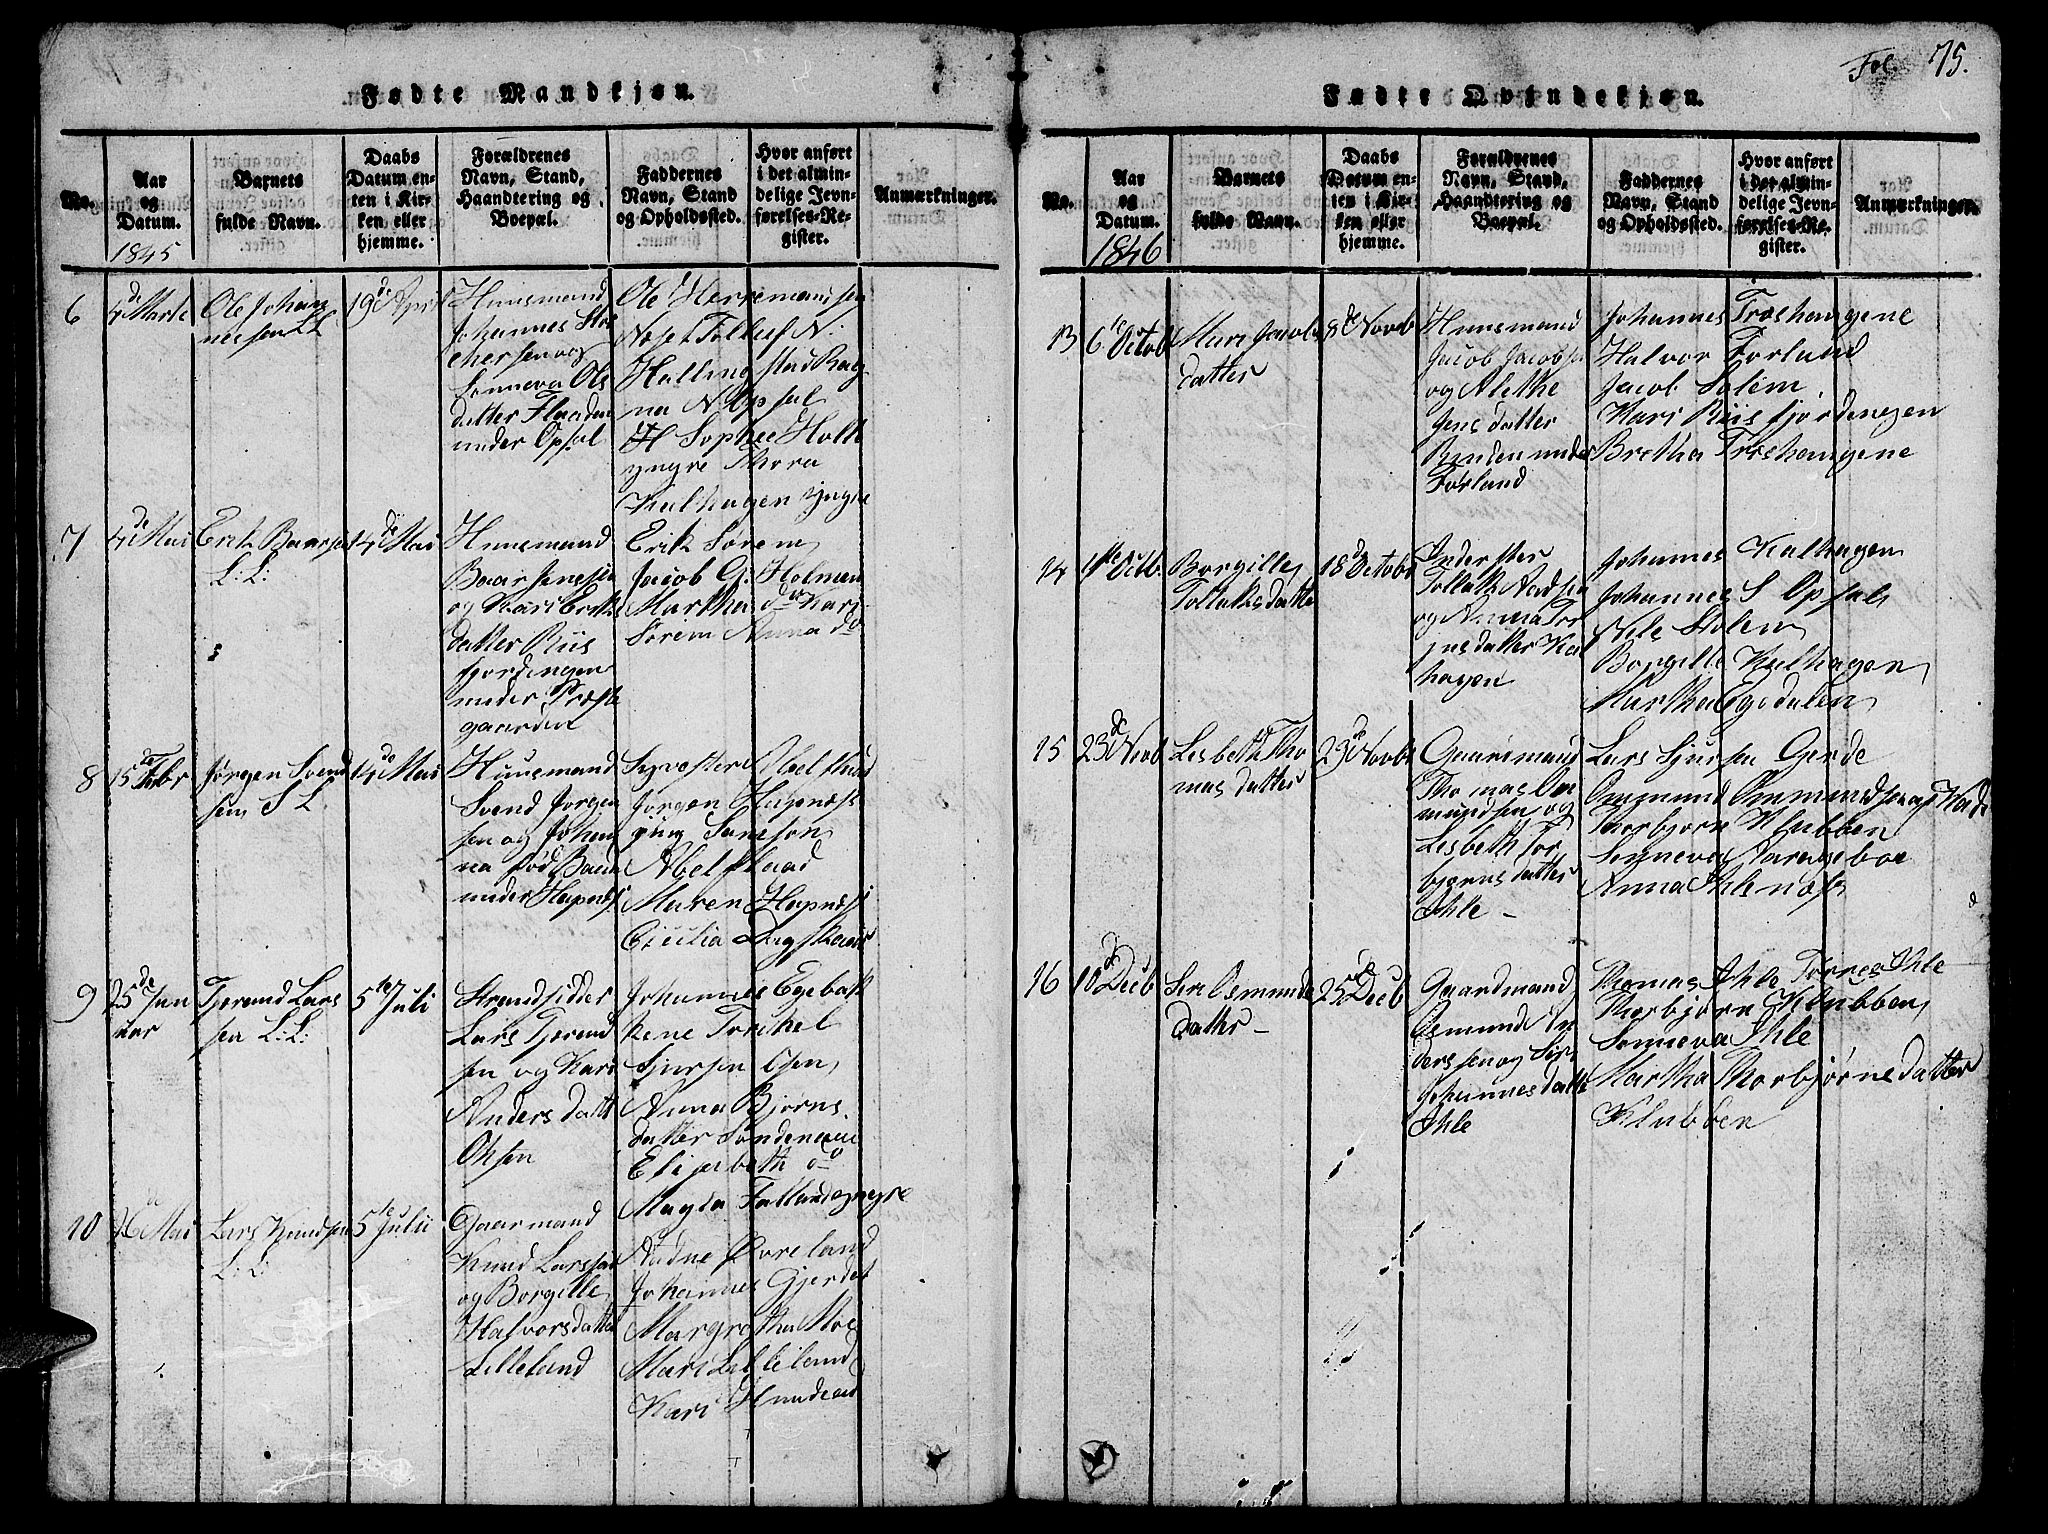 Fødte Mandkjøn.
No.
Aar
og
Datum.
1845
Barnets
fulde Navn.
Daabs
Datum en-
ten i Kir-
ken eller
hjemme.
Forældrenes
Navn, Stand,
Haandtering og
Boepæl.
Faddernes
Navn, Stand
og Opholdssted.
Hvor anført
i det almin-
delige Jevn-
førelses-Re-
gister.
Anmærkninger.
6
4de Marts
Ole Johan
nessen LL
19de April
Huusmand
Johannes
chersen og
Sinneva Ols
datter Flaaden
under Opsal
Ole Herremansen
Næset Tollef N:
Hallingstad Rag
na N Opsal
Sophie Holk
yngre Thora
Kalhagen yngre
7
4de Mai
Erik Baarsen
L: L:
14de Mai
Huusmand
Baar Jensen
og Kari Eriks
datter Riis
fjordengen
under Præste
gaarden
Erik Sørem
Jacob G: Holmen
Martha do Kari
Sørem Anna do
8
15de Febr
Jørgen Svend
sen S L
14de Mai
Huusmand
Svend Jørgen
sen og Johan
na født Baade
under Hapnæs
Sylvester Abelsted
Jørgen Hapnæs
Simeson
Abelstad
Maren Hapnæs
Cicilia Dagskaar
9
25de Jan
uar
Tjerand Lars
sen L: L:
5te Juli
Strandsidder
Lars Tjerand
sen og Kari
Anders datt
Olsen
Johannes Egebak
kene Torkel
Sjursen Olsen
Anna Bjørns
datter Sondenaae
Elisabeth do
10
Mai
Lars Knudsen
L: L:
5te Julii
Gaarmand
Knud Larssen
og Borgille
Halvorsdatter
Lilleland
Magla Fatland yngre
Aadne Øvreland
Johannes Gjerdet
Margretha Moe
Mari Lilleland
Kari
Fol. 75.
Fødte Qvindekjøn.
No.
Aar
og
Datum.
1846
Barnets
fulde Navn.
Daabs
Datum en-
ten i Kir-
ken eller
hjemme.
Forældrenes
Navn, Stand,
Haandtering og
Boepæl.
Faddernes
Navn, Stand
og Opholdssted.
Hvor anført
i det almin-
delige Jevn-
førelses-Re-
gister.
Anmærkninger.
13
6te Octob
Mari Jacobs
datter
8de Novb
Huusmand
Jacob Jacobsen
og Alethe
Jens datter
Rinden under
Førland
Johannes Træshaugene
Halvor Førland
Jacob Solem
Kari Riisfjordengen
Bretha Træshaugene
14
Octb.
Borgille
Tollaksdatter
18de Octobr
Inderster
Tollak Aadsen
og Anna Tor
jus datter Kal
hagen
Johannes Kalhagen
Johannes S Opsal
Nele Stolen
Borgille Kalhagen
Martha Egedalen
15
23de Novb
Lisbeth Tho
mas datter
29de Novb
Gaarsmand
Thomas Om
mundsen og
Lisbeth Tor
bjørns datter
Ihle -
Lars Sjursen Gerde
Ommund Ommundsen af
Torbjørn Klubben
Senneva Aarageboe
Anna Ihlenæs
16
10de Decb
Siri Osmunds
datter -
25de Decb
Gaardmand
Osmund An
derssen og Siri
Johannes datter
Ihle
Thomas Ihle Tørres Ihle
Thorbjørn Klubben
Senneva Ihle
Martha Thorbjørnsdatter
Klubben